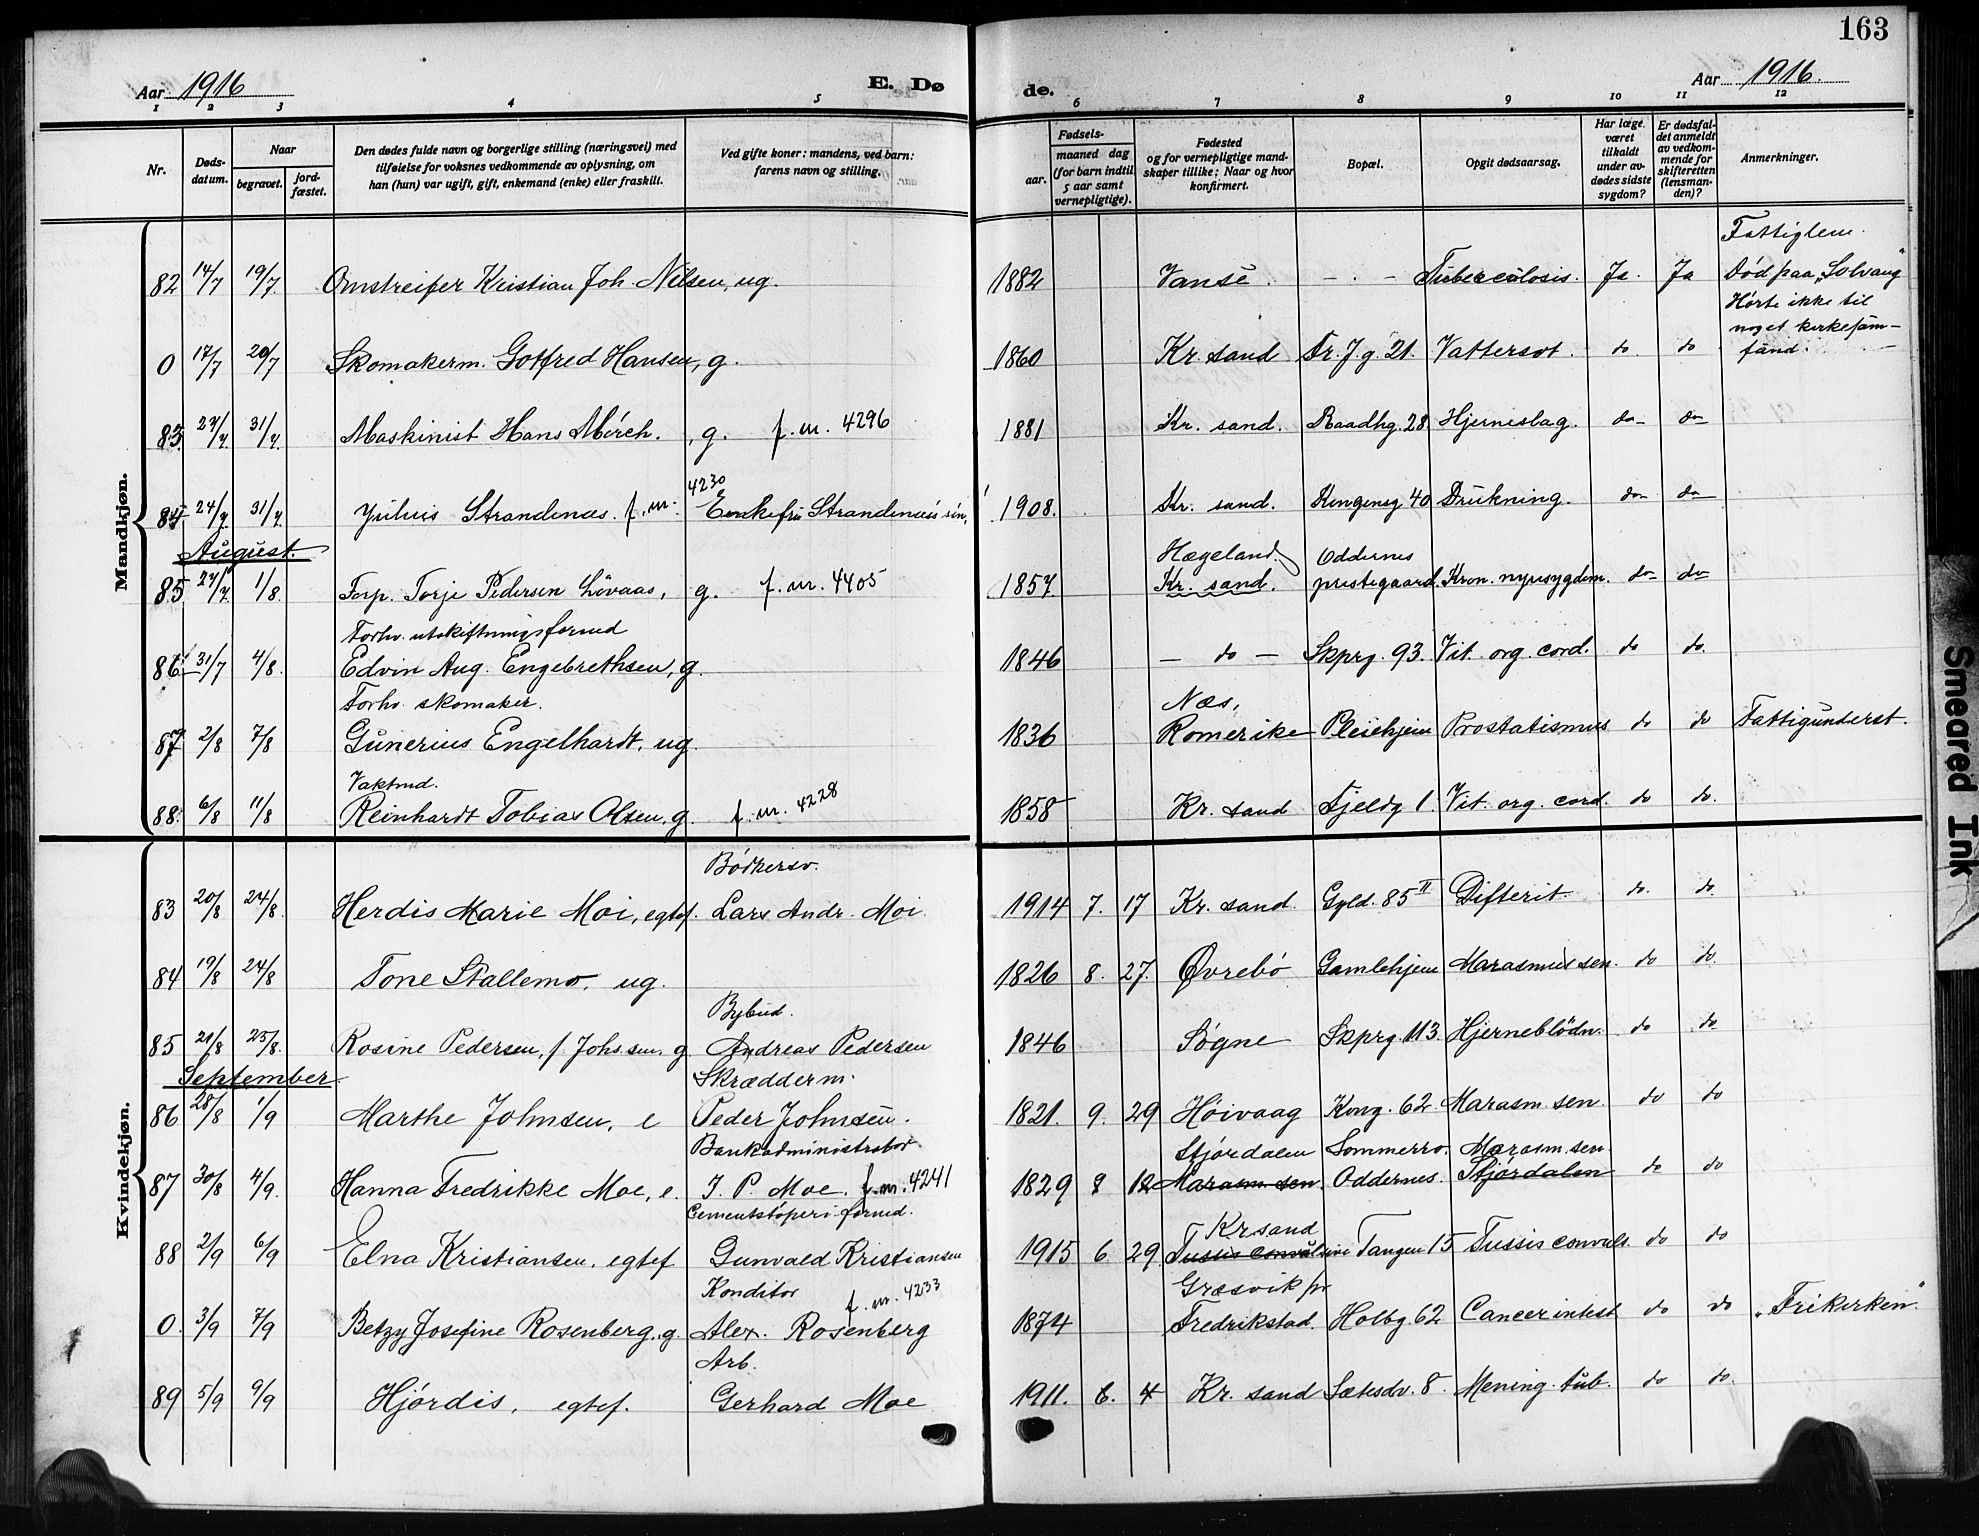 163
Aar 1916 E. Døde. Aar 1916.
1 2 3 4 5 6 7 8 9 10 11 12
Nr.
Døds-datum.
Naar
begravet.
jord-fæstet.
Den dødes fulde navn og borgerlige stilling (næringsvei) med
tilføielse for voksnes vedkommende av oplysning, om
han (hun) var ugift, gift, enkemand (enke) eller fraskilt.
Ved gifte koner: mandens, ved barn:
farens navn og stilling.
Fødsels-
aar.
maaned dag
(for barn indtil
5 aar samt
vernepligtige).
Fødested
og for vernepligtige mand-
skaper tillike: Naar og hvor
konfirmert.
Bopæl.
Opgit dødsaarsag.
Har læge
været
tilkaldt
under av-
dødes sidste
sygdom?
Er dødsfal-
det anmeldt
av vedkom-
mende for
skifteretten
(lensman-
den)?
Anmerkninger.
Mandkjøn.
Fattiglem.
82 14/7 19/7 Omstreifer Kristian Joh. Nilsen, ug. 1882 Vanse. - . - Tuberculosis. Ja. Ja Død paa "Solvang"
Hørte ikke til
noget kirkesam-
fund.
0 17/7 20/7 Skomakerm. Gotfred Hansen, g. 1860 Kr. sand Tr. J g. 21. Vattersot. do do
83 27/7 31/7 Maskinist Hans Mörch. , g. f. m. 4296 1881 Kr. sand. Raadhg. 28 Hjerneslag. do do
4230
84 24/7 31/7 Julius Strandenæs. f. m. Enkefru Strandenæs's sön, 1908. Kr. sand. Kongensg 40 Drukning. do do
August.
Hægeland. Oddernes
85 27/7 1/8 Forp. Torje Pedersen Lövaas, g. f. m. 4405 1857 Kr. sand. prestegaard. Kron. nyresygdom. do do
Forhv. utskiftningsformd
86 31/7 4/8. Edvin Aug. Engebrethsen, g. 1846 - do - Skprg. 93. Vit. org. cord. do do.
Forhv. skomaker. Næs,
87 2/8 7/8 Gunerius Engelhardt, ug. 1836 Romerike Pleiehjem Prostatismus do do Fattigunderst.
Vaktmd.
88. 6/8 11/8 Reinhardt Tobias Olsen, g. f. m. 4228 1858 Kr. sand Fjeldg 1 Vit. org. cord. do do.
Kvindekjøn.
Bödkersv.
83 20/8 24/8. Herdis Marie Moi, egtef. Lars Andr. Moi. 1914 7. 17 Kr. sand. Gyld. 85 II Difterit. do. do.
84 19/8 24/8 Tone Stallemo, ug. 1826 8. 27. Øvrebö Gamlehjem Marasmus sen. do do.
Bybud.
85 21/8 25/8. Rosine Pedersen, f. Johssen, g. Andreas Pedersen 1846 Søgne Skprg. 113. Hjerneblödn. do do
September
Skrædderm.
86 28/8 1/9 Marthe Johnsen, e Peder Johnsen. 1821. 9. 29 Høivaag Kong. 62 Marasm sen. do do
Bankadministrator. Stjördalen Sommerro. Marasm sen.
87 30/8 4/9. Hanna Fredrikke Moe, e. J. P. Moe. f. m. 4241 1829 9 12 Marasm sen. Oddernes. Stjördalen do do
Cementstöperi formd. Kr sand
88 2/9 6/9 Elna Kristiansen, egtef Gunvald Kristiansen 1915 6. 29 Tussis convulsive Tangen 15 Tussis convuls. do do
Konditor f. m. 4233 Græsvik pr
0. 3/9 7/9 Betzy Josefine Rosenberg, g. Alex. Rosenberg 1874 Fredrikstad. Holbg. 62 Cancer intest do do "Frikirken".
Arb.
89 5/9 9/9 Hjórdis, egtef. Gerhard Moe 1911. 6. 4 Kr. sand Sætesdv. 8. Mening. tub. do do.
Smeared Ink